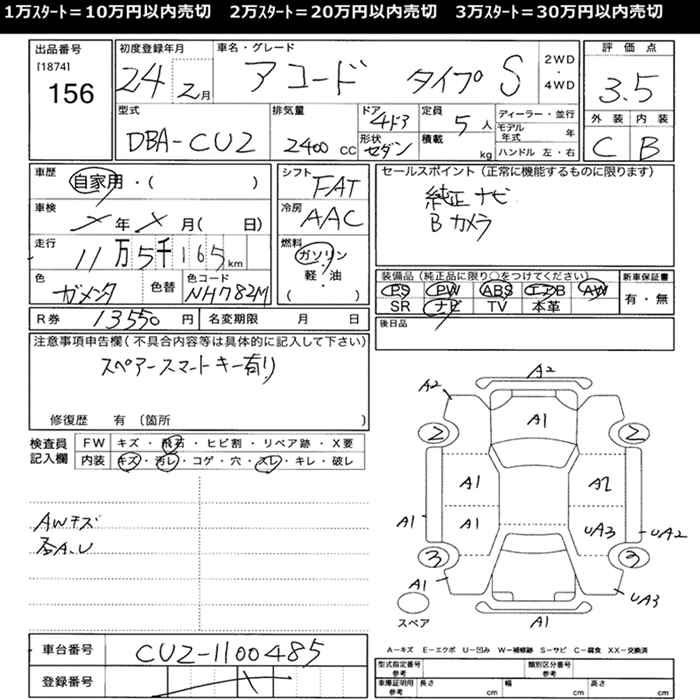 1万ｽﾀｰﾄ＝10万円以内売切　2万ｽﾀｰﾄ＝20万円以内売切　3万ｽﾀｰﾄ＝30万円以内売切
出品番号
[1874]
156
初度登録年月
24 2月
車名・グレード
アコード タイプS
2WD
・
4WD
評価点
3.5
型式
DBA-CU2
排気量
2400 cc
ドア
4ドア
形状
セダン
定員
5人
積載
kg
ディーラー・並行
モデル年式 年
ハンドル 左・右
外装 内装
C B
車歴
自家用・( )
車検
年 月( 日)
走行
11万5千165km
色
ガンメタ
色替
色コード
NH782M
シフト
FAT
冷房
AAC
燃料
ガソリン
軽・油
( )
セールスポイント(正常に機能するものに限ります)
純正ナビ
Bカメラ
装備品(純正品に限り○をつけてください)
PS PW ABS エアB AW
SR ナビ TV 本革
新車保証書
有・無
後日品
R券 13550円 名変期限 月 日
注意事項申告欄(不具合内容等は具体的に記入して下さい)
スペアースマートキー有り
修復歴 有 (箇所 )
検査員記入欄
FW キズ・飛石・ヒビ割・リペア跡・X要
内装 キズ・汚レ・コゲ・穴・スレ・キレ・破レ
AWキズ
各A.U
A2
A2
A1
2 2
A1 A2
A1 A1 UA3 UA2
3 3
A1 UA3
A1
スペア
A－キズ E－エクボ U－凹み W－補修跡 S－サビ C－腐食 XX－交換済
車台番号
CU2-1100485
登録番号
型式指定番号 参考
類別区分番号 参考
車庫証明用 参考
長さ cm 幅 cm 高さ cm